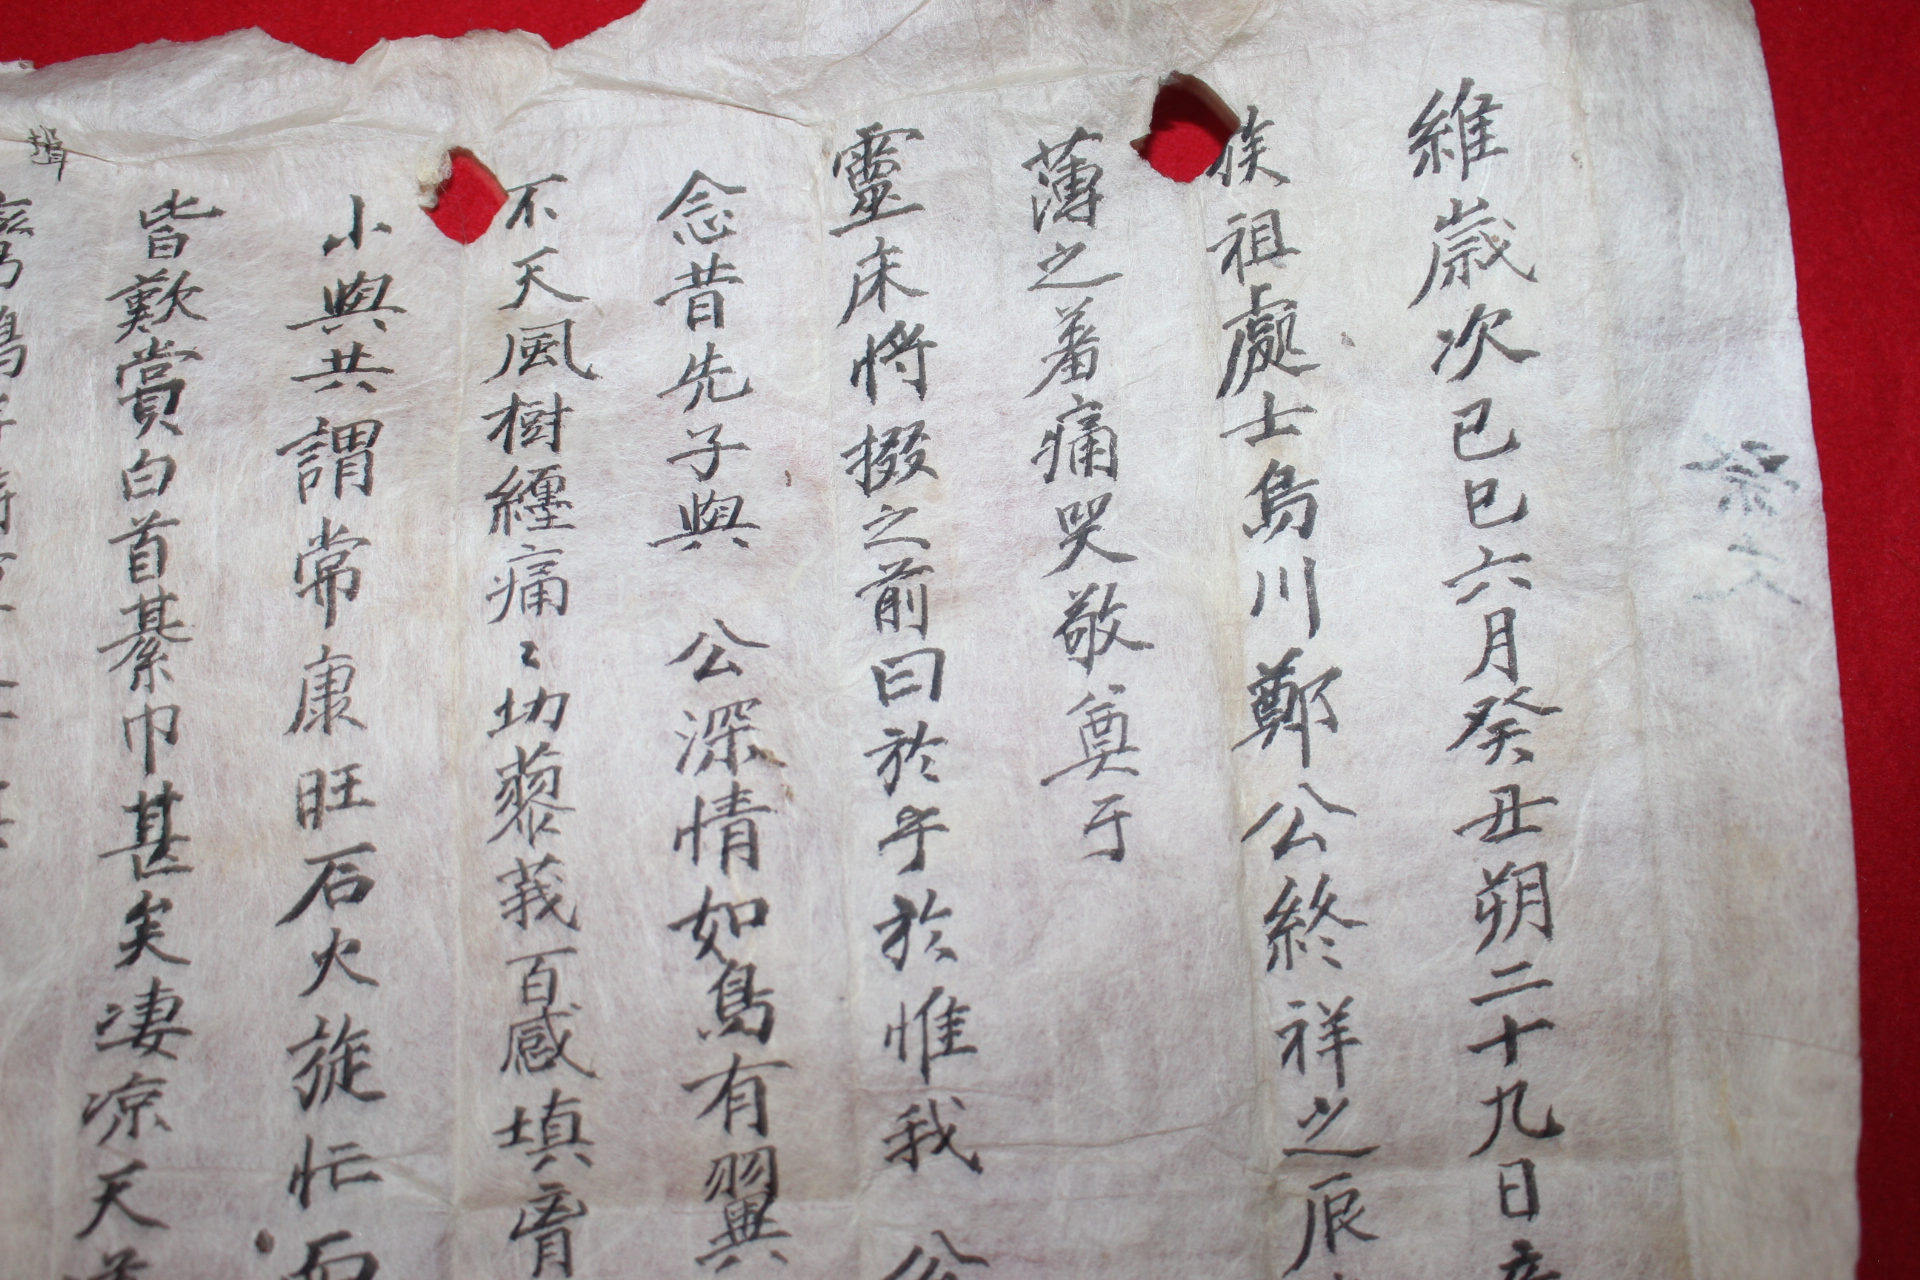 祭文
維歲次己巳六月癸丑朔二十九日
族祖處士烏川鄭公終祥之辰
薄之著痛哭敬奠于
靈床將掇之前曰於乎於惟我 公
念昔先子與 公深情如鳥有翼
不天風樹纏痛〻切蓼莪百感填胷
小與共謂常康旺石火旋忙而
皆歎賞白首綦巾甚矣凄凉天